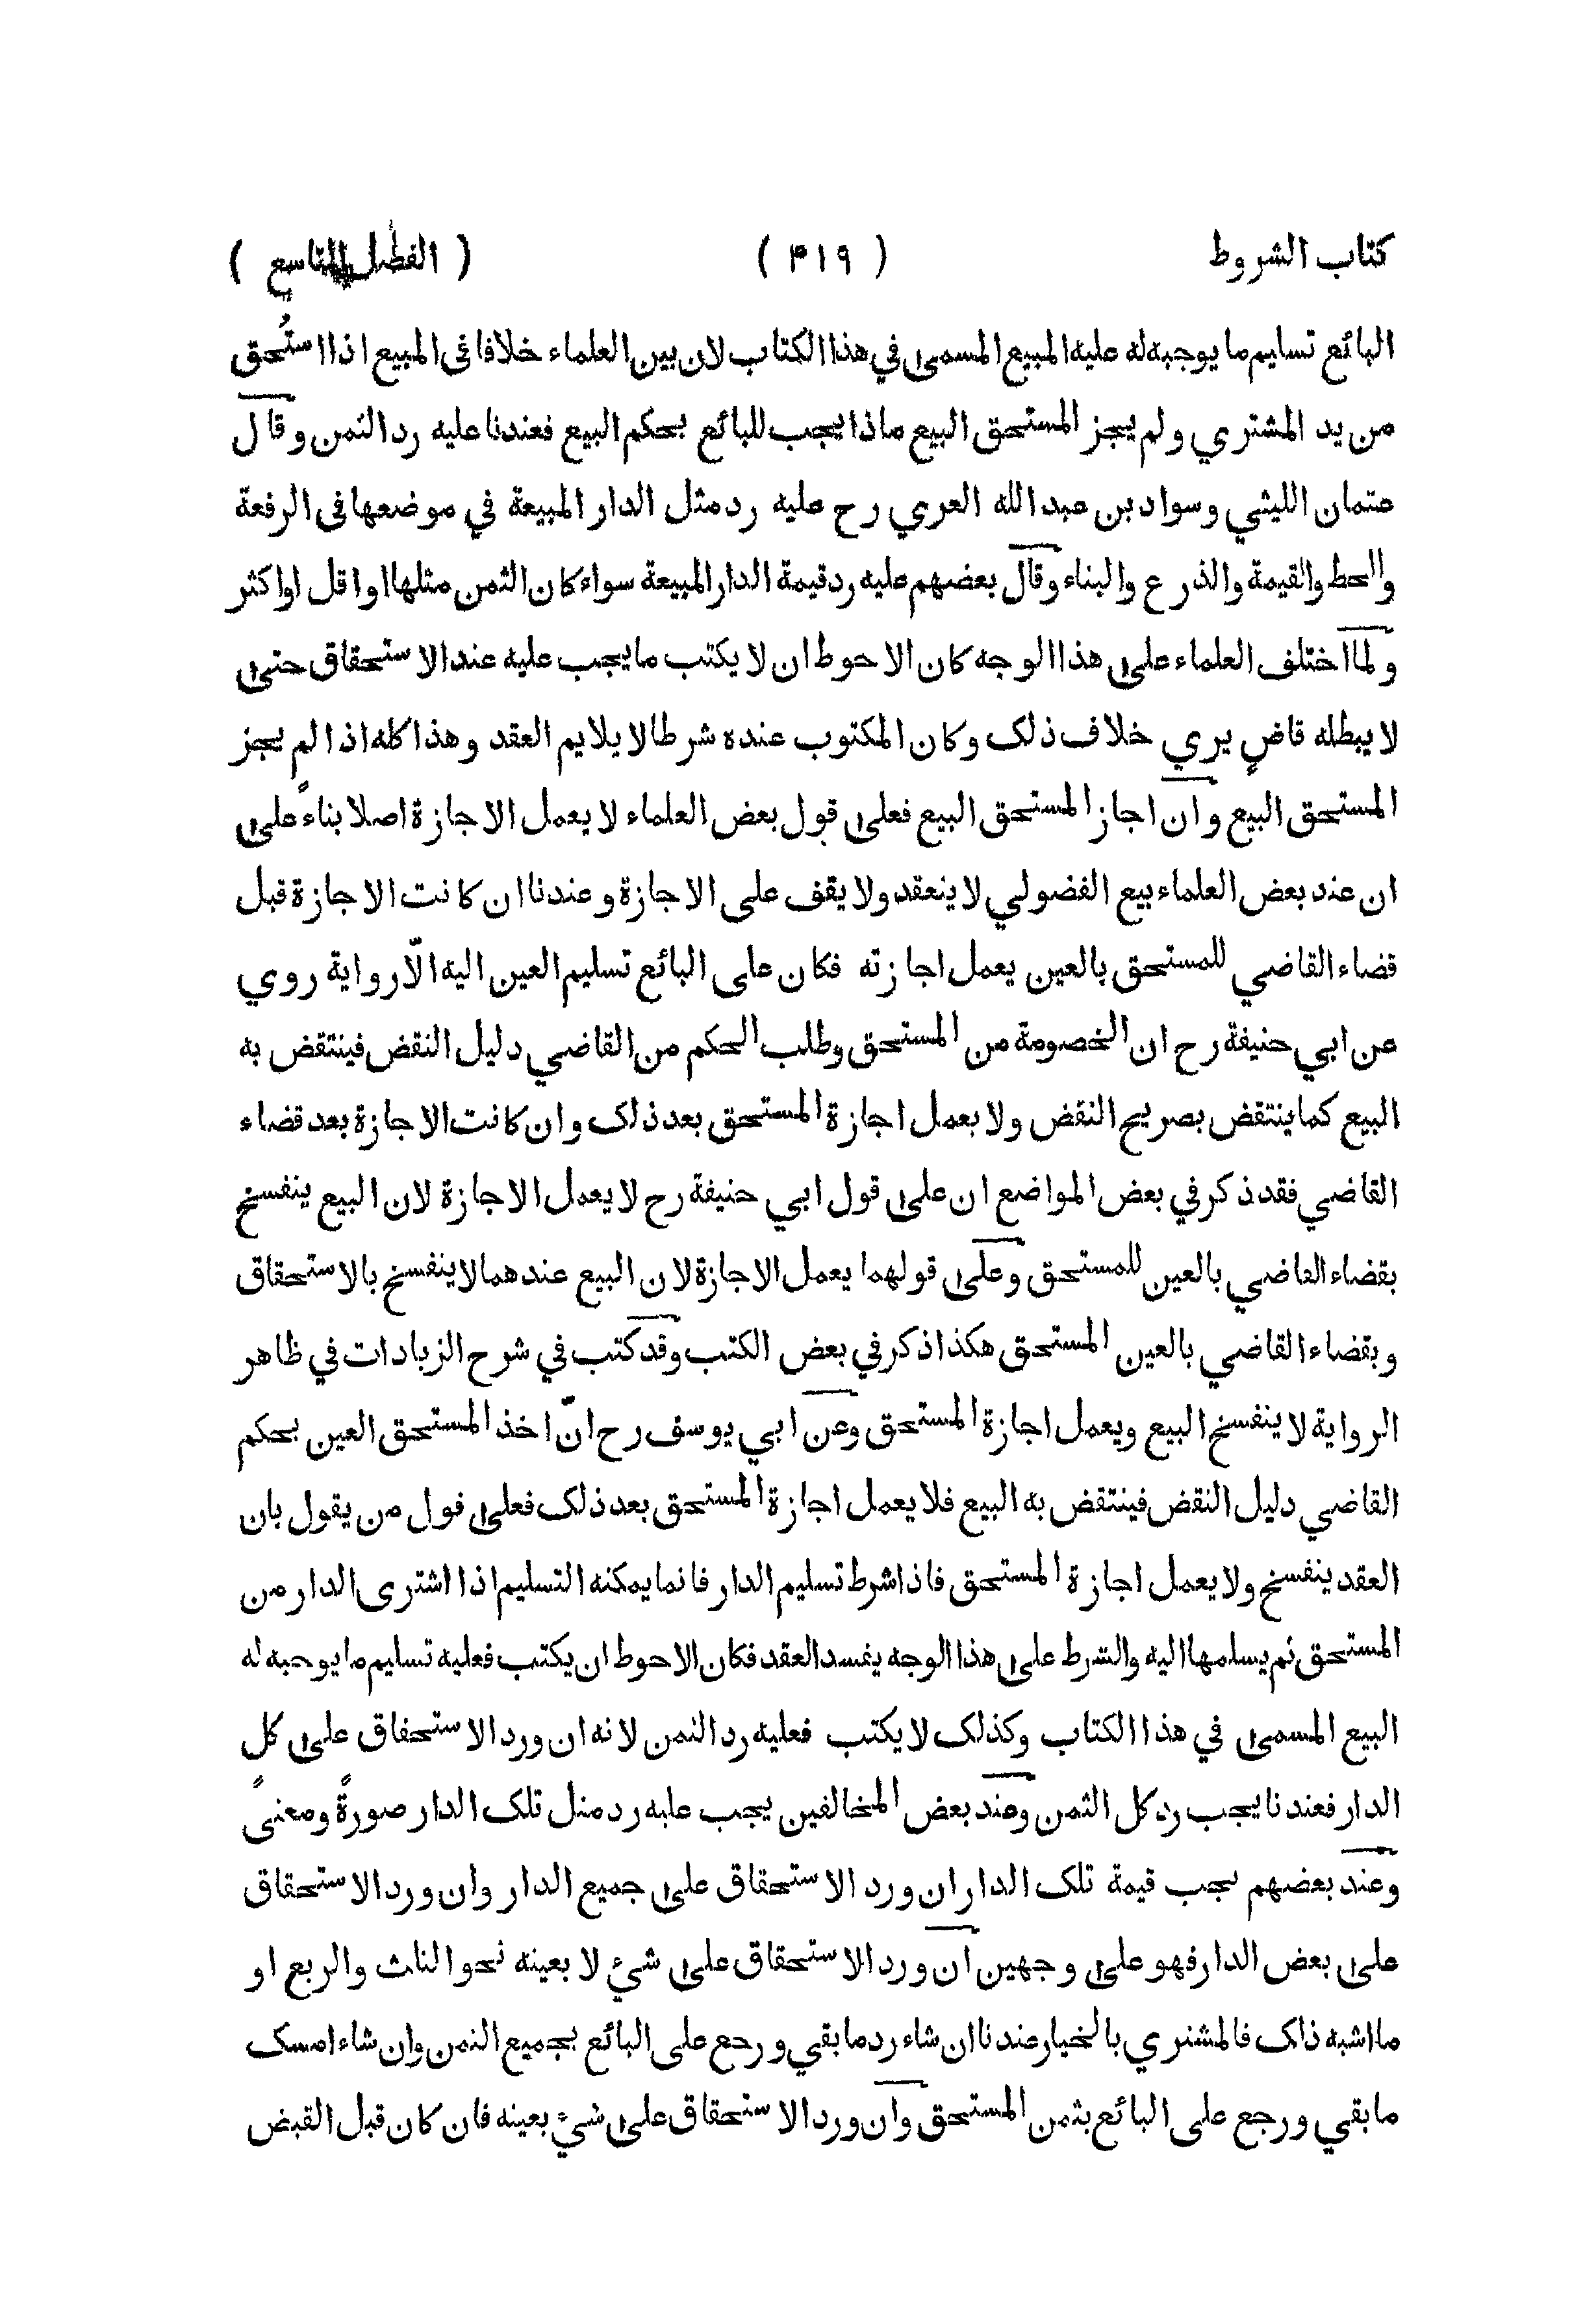 كتاب الشروط ( ٣١٩ ) ( الفصل التاسع )
البائع تسليم ما يوجبه له عليه المبيع المسمى في هذا الكتاب لان بين العلماء خلافا في المبيع اذا استُحق
من يد المشتري ولم يجز المستحق البيع ماذا يجب للبائع بحكم البيع فعندنا عليه رد الثمن وقال
عتمان الليثي وسواد بن عبد الله العري رح عليه رد مثل الدار المبيعة في موضعها في الرفعة
والحط والقيمة والذرع والبناء وقال بعضهم عليه رد قيمة الدار المبيعة سواء كان الثمن مثلها او اقل او اكثر
ولما اختلف العلماء على هذا الوجه كان الاحوط ان لا يكتب ما يجب عليه عند الاستحقاق حتى
لا يبطله قاضٍ يري خلاف ذلك وكان المكتوب عنده شرطا لا يلايم العقد وهذا كله اذا لم يجز
المستحق البيع وان اجاز المستحق البيع فعلى قول بعض العلماء لا يعمل الاجازة اصلا بناءً على
ان عند بعض العلماء بيع الفضولي لا ينعقد ولا يقف على الاجازة وعندنا ان كانت الاجازة قبل
قضاء القاضي للمستحق بالعين يعمل اجازته فكان على البائع تسليم العين اليه الّا رواية روي
عن ابي حنيفة رح ان الخصومة من المستحق وطلب الحكم من القاضي دليل النقض فينتقض به
البيع كما ينتقض بصريح النقض ولا يعمل اجازة المستحق بعد ذلك وان كانت الاجازة بعد قضاء
القاضي فقد ذكر في بعض المواضع ان على قول ابي حنيفة رح لا يعمل الاجازة لان البيع ينفسخ
بقضاء القاضي بالعين للمستحق وعلى قولهما يعمل الاجازة لان البيع عندهما لا ينفسخ بالاستحقاق
وبقضاء القاضي بالعين المستحق هكذا ذكر في بعض الكتب وقد كتب في شرح الزيادات في ظاهر
الرواية لا ينفسخ البيع ويعمل اجازة المستحق وعن ابي يوسف رح انّ اخذ المستحق العين بحكم
القاضي دليل النقض فينتقض به البيع فلا يعمل اجازة المستحق بعد ذلك فعلى قول من يقول بان
العقد ينفسخ ولا يعمل اجازة المستحق فاذا شرط تسليم الدار فانما يمكنه التسليم اذا اشترى الدار من
المستحق ثم يسلمها اليه والشرط على هذا الوجه يفسد العقد فكان الاحوط ان يكتب فعليه تسليم ما يوجبه له
البيع المسمى في هذا الكتاب وكذلك لا يكتب فعليه رد الثمن لانه ان ورد الاستحقاق على كل
الدار فعندنا يجب رد كل الثمن وعند بعض المخالفين يجب عليه رد مثل تلك الدار صورةً ومعنىً
وعند بعضهم يجب قيمة تلك الدار ان ورد الاستحقاق على جميع الدار وان ورد الاستحقاق
على بعض الدار فهو على وجهين ان ورد الاستحقاق على شيءٍ لا بعينه نحو الثلث والربع او
ما اشبه ذلك فالمشتري بالخيار عندنا ان شاء رد ما بقي ورجع على البائع بجميع الثمن وان شاء امسك
ما بقي ورجع على البائع بثمن المستحق وان ورد الاستحقاق على شيءٍ بعينه فان كان قبل القبض